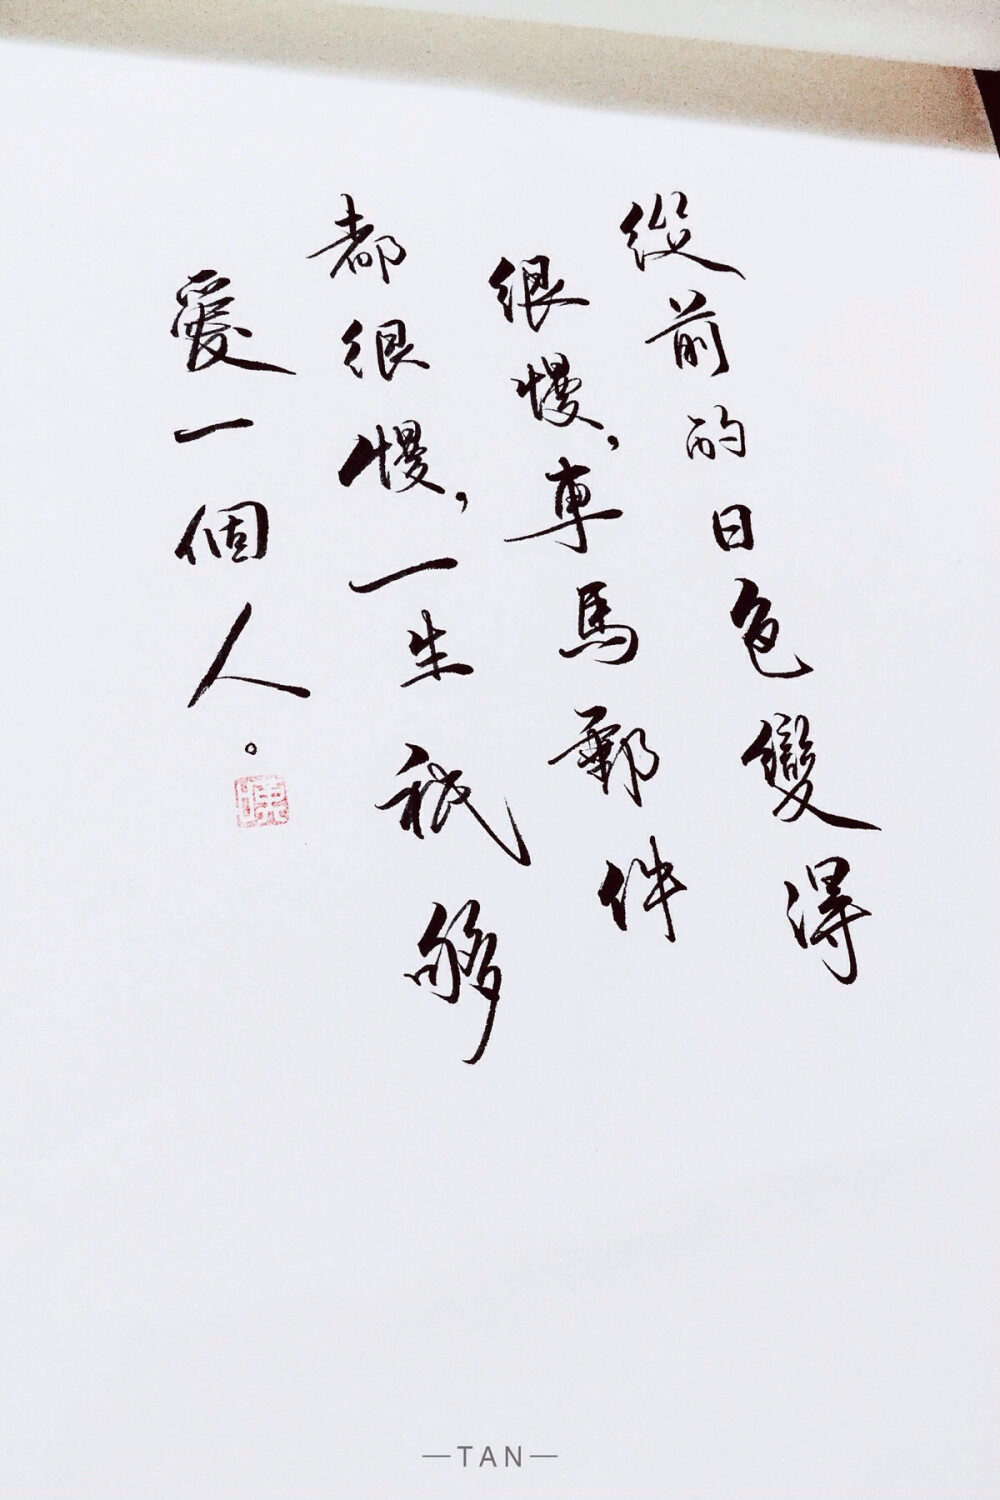 從前的日色變得
很慢，車馬郵件
都很慢，一生祇夠
愛一個人。
—TAN—